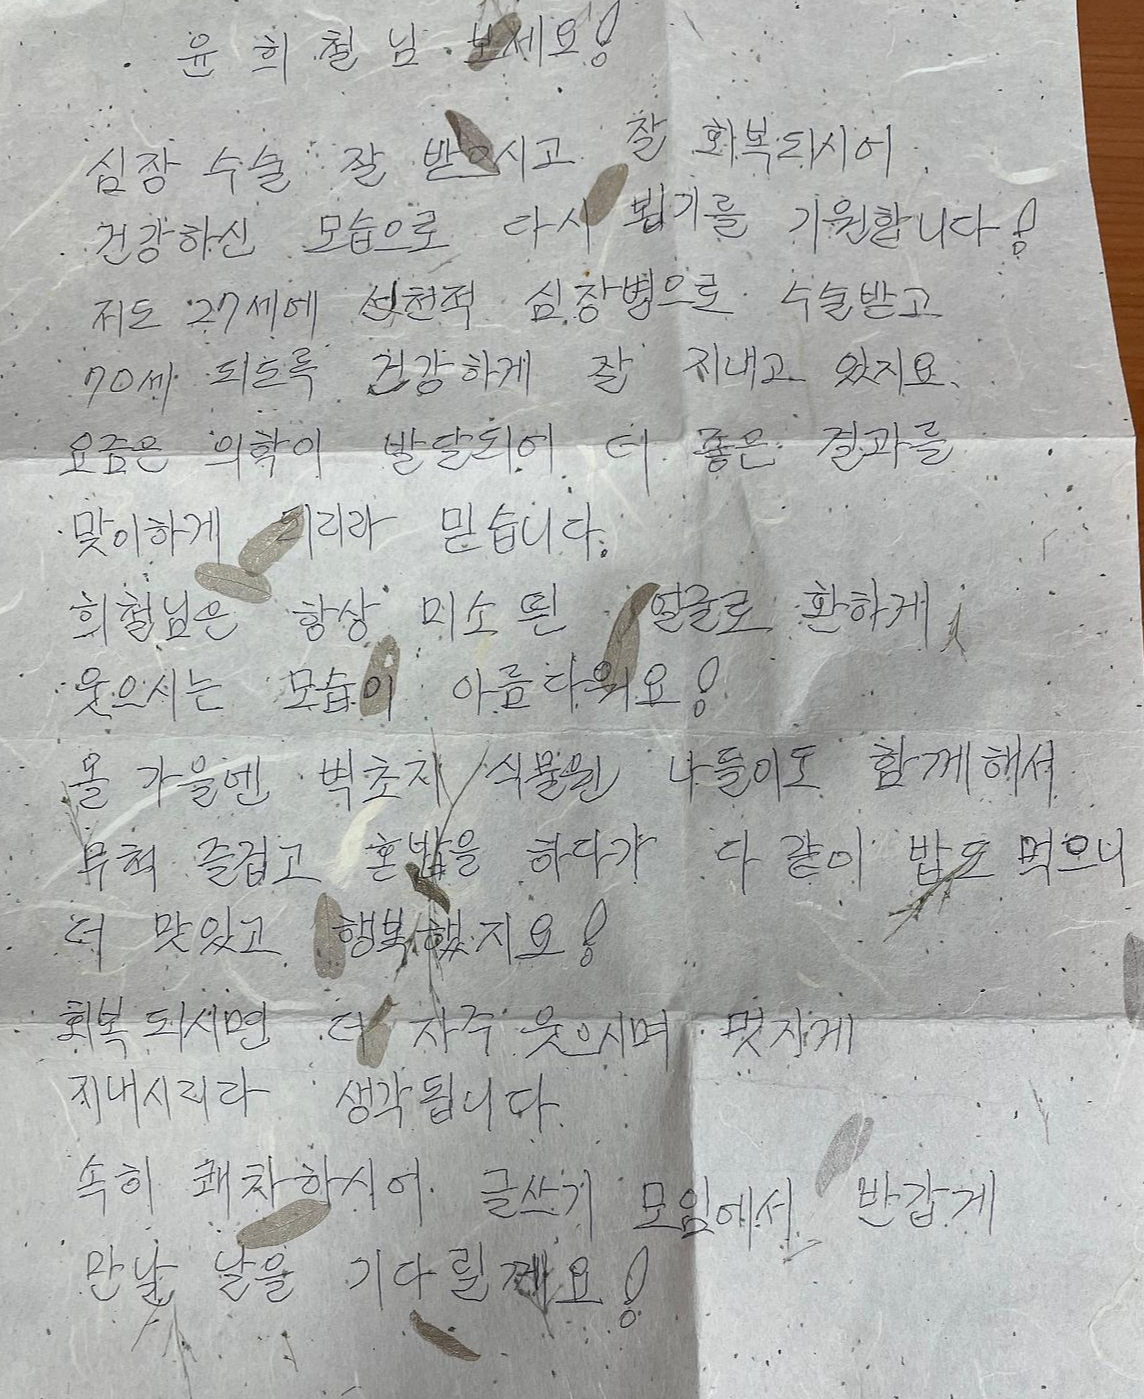 윤희철님 보세요!
심장 수술 잘 받으시고 잘 회복되시어
건강하신 모습으로 다시 뵙기를 기원합니다!
저도 27세에 선천적 심장병으로 수술받고
70세 되도록 건강하게 잘 지내고 있지요.
요즘은 의학이 발달되어 더 좋은 결과를
맞이하게 되리라 믿습니다.
희철님은 항상 미소 띈 얼굴로 환하게
웃으시는 모습이 아름다워요!
올 가을엔 벽초지 식물원 나들이도 함께해서
무척 즐겁고 혼밥을 하다가 다 같이 밥도 먹으니
더 맛있고 행복했지요!
회복되시면 더 자주 웃으시며 멋지게
지내시리라 생각됩니다.
속히 쾌차하시어 글쓰기 모임에서 반갑게
만날 날을 기다릴께요!